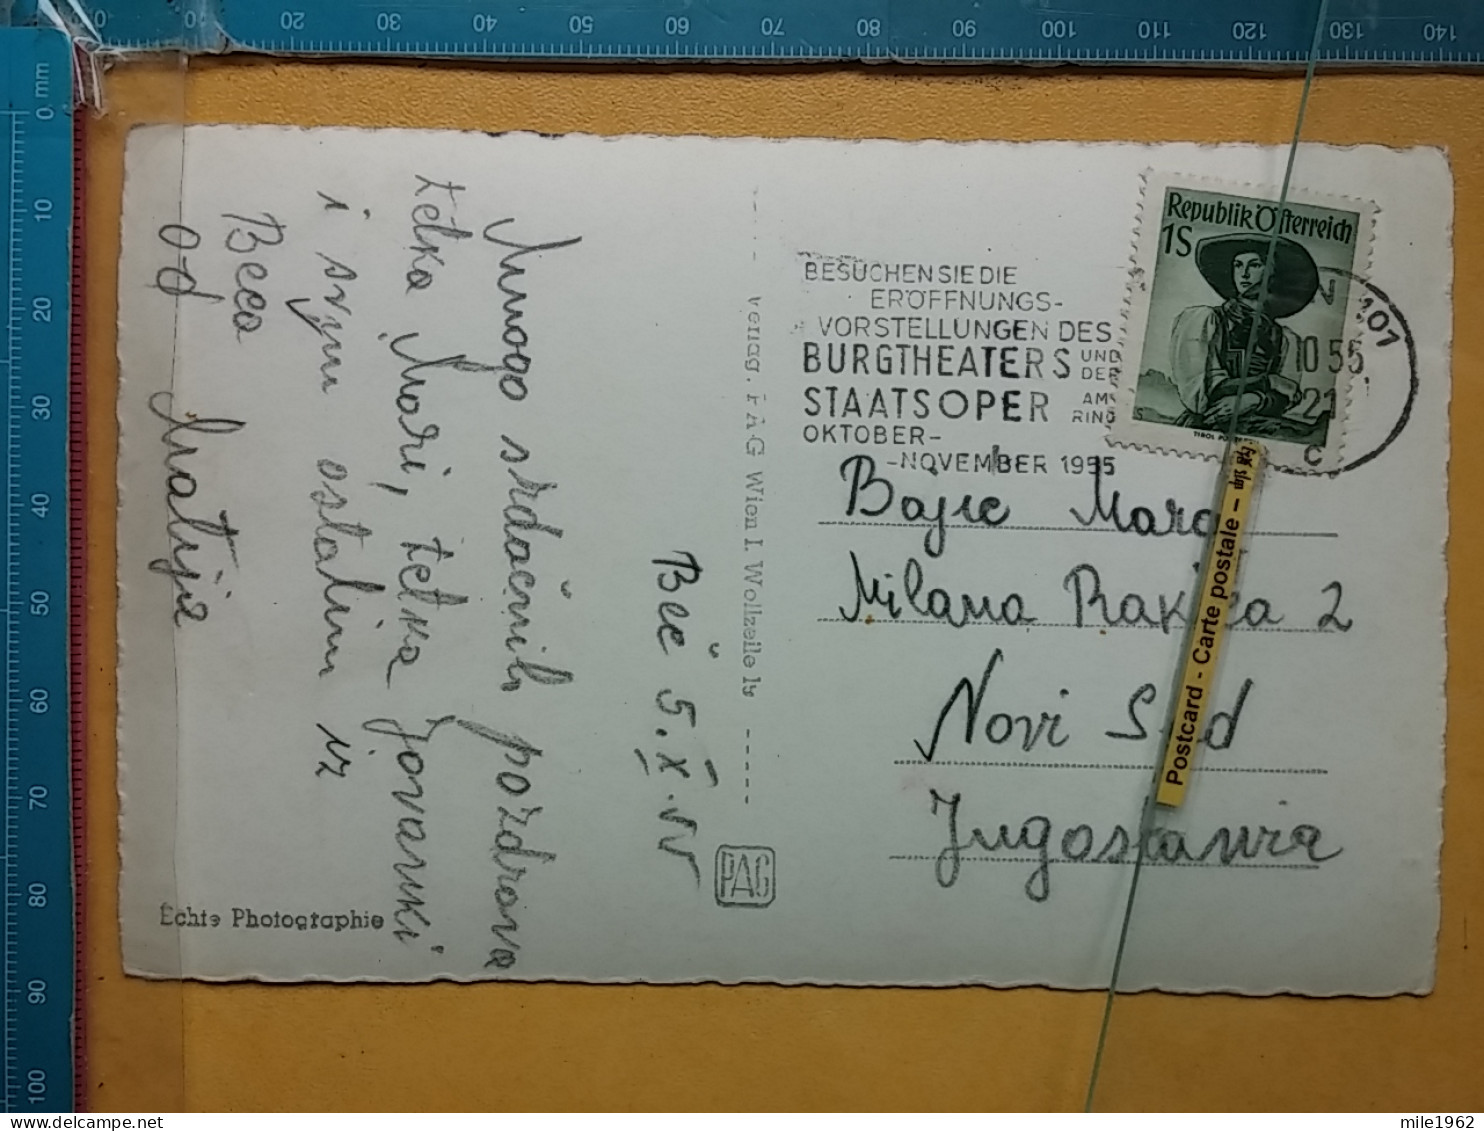 Mnogo srdačnih pozdrava
tetka Mari, tetka Jovanki
i svym ostalim iz
Beca
od Matije
Beč 5. X. VV
Verlag. PAG Wien I. Wollzeile
PAG
Echte Photographie
BESUCHEN SIE DIE
ERÖFFNUNGS-
VORSTELLUNGEN DES
BURGTHEATERS UND
DER
STAATSOPER AM
RING
OKTOBER-
-NOVEMBER 1955
Republik Österreich
1S
101
10 55
21
C
Bajic Mara
Milana Rakica 2
Novi Sad
Jugoslavia
Postcard - Carte postale -
0 mm 10 20 30 40 50 60 70 80 90 100
20 30 40 50 60 70 80 90 100 110 120 130 140
mile1962